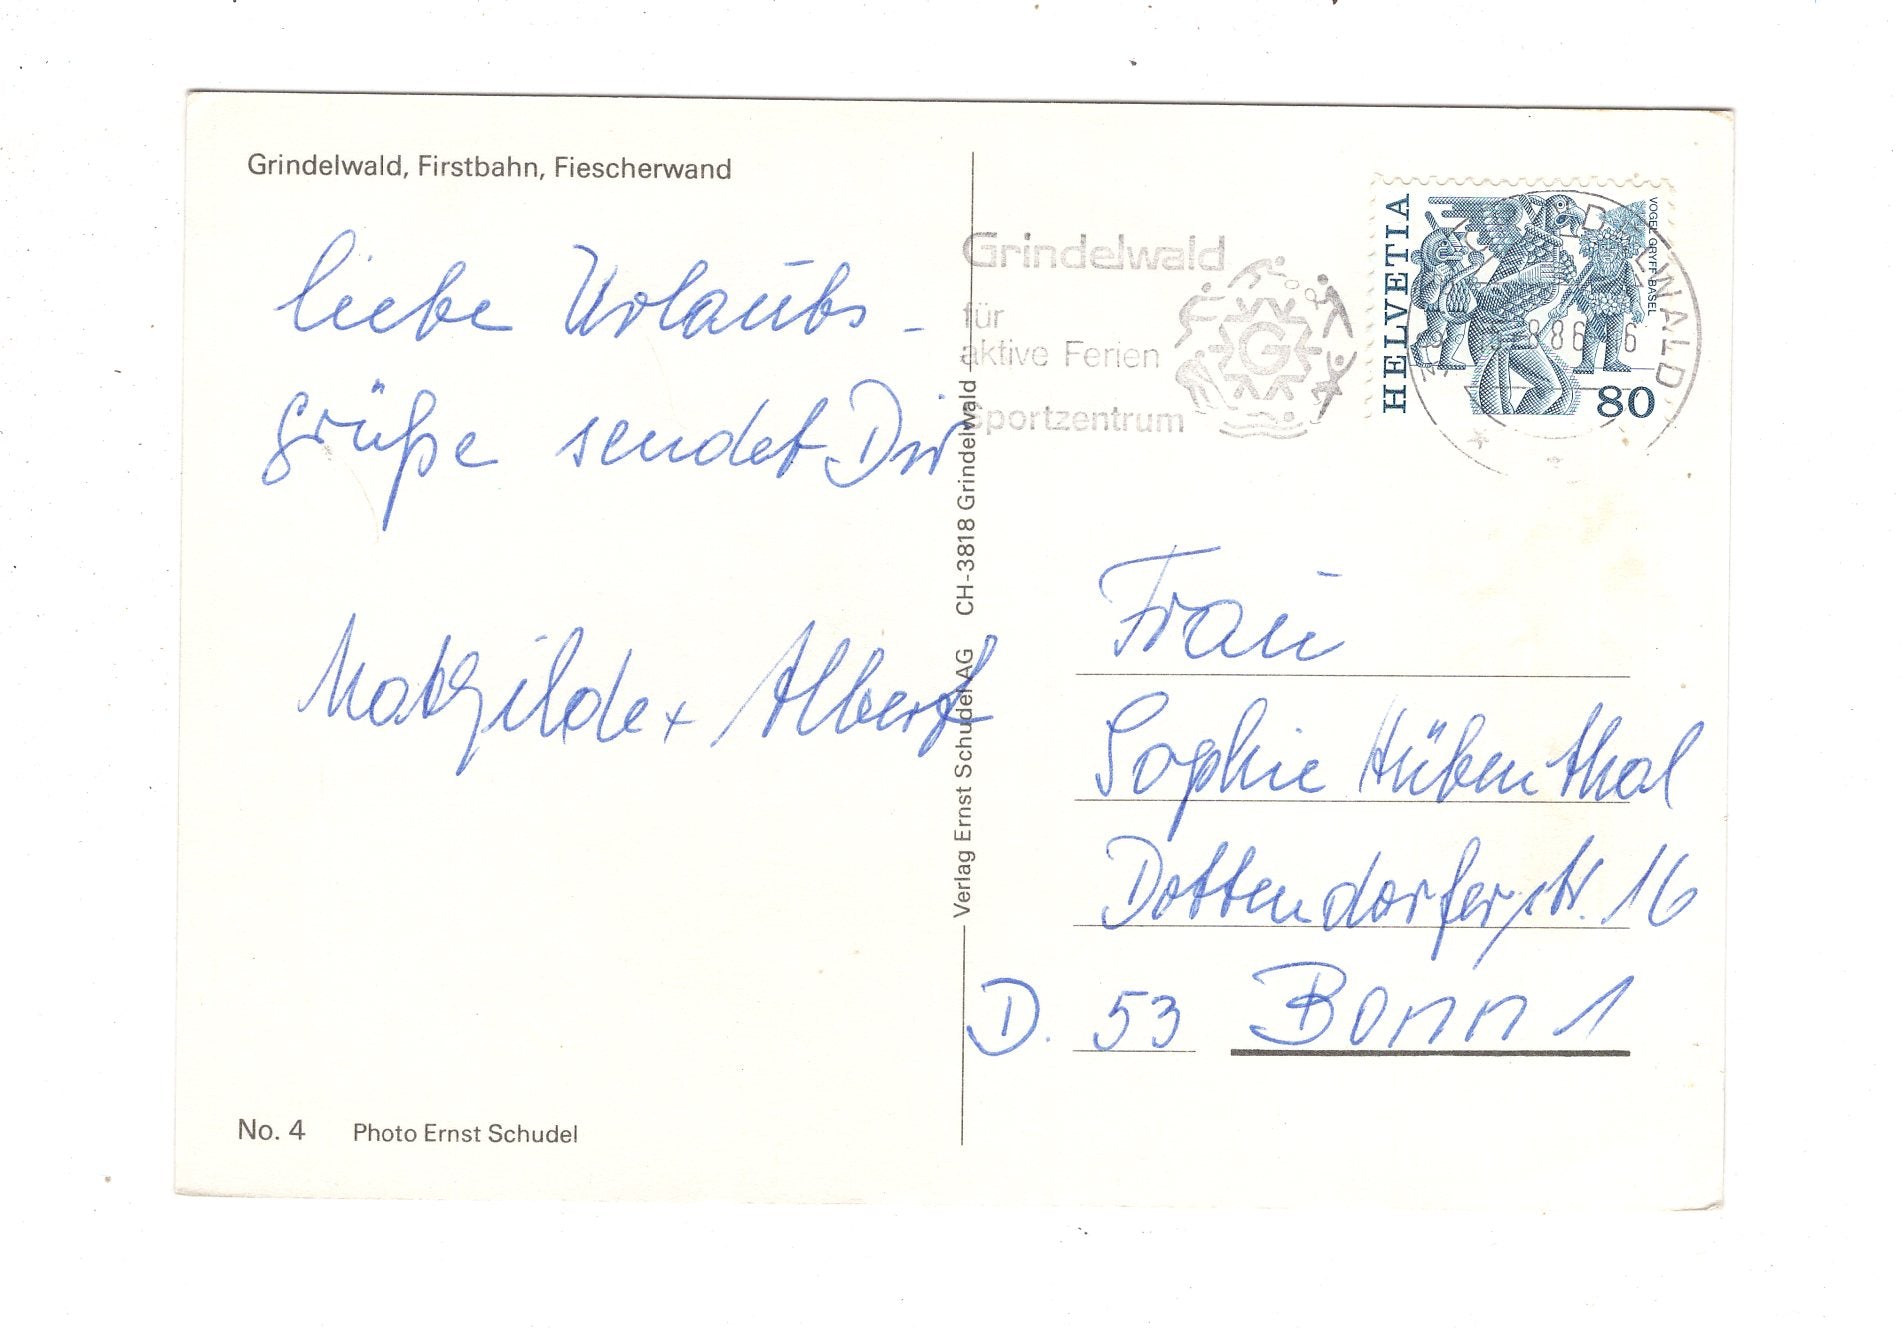 Grindelwald, Firstbahn, Fiescherwand
liebe Urlaubs-
grüße sendet Dir
Mathilde + Albert
No. 4 Photo Ernst Schudel
Verlag Ernst Schudel AG CH-3818 Grindelwald
Grindelwald
für
aktive Ferien
Sportzentrum
G
HELVETIA
VOGEL GRYFF-BASEL
80
Frau
Sophie Hübenthal
Dottendorferstr. 16
D. 53 Bonn 1